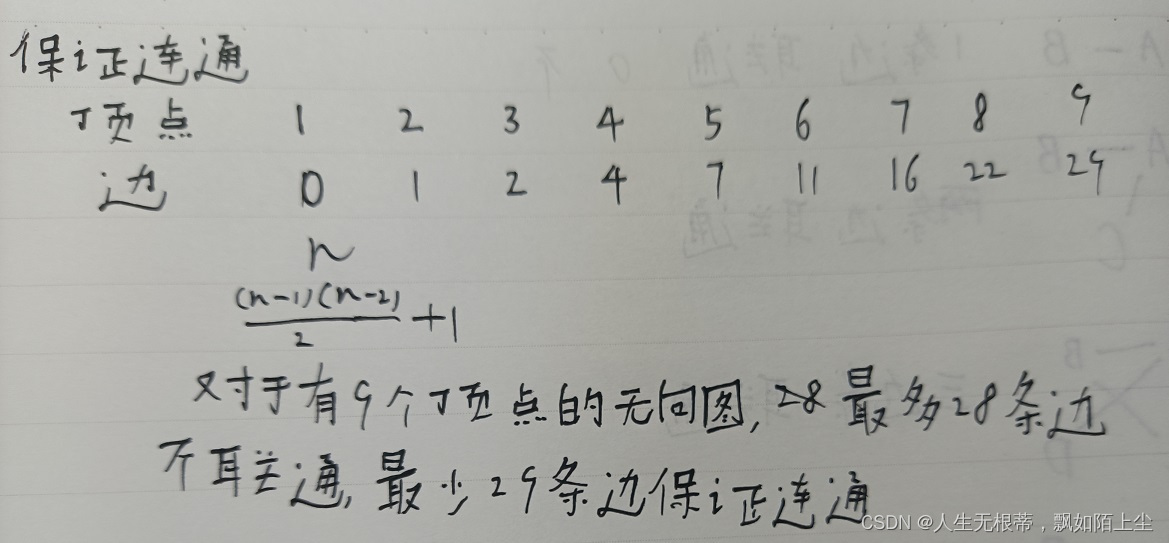 保证连通
顶点 1 2 3 4 5 6 7 8 9
边 0 1 2 4 7 11 16 22 29
n
(n-1)(n-2)/2 +1
对于有9个顶点的无向图, 28 最多28条边
不联通, 最少29条边保证连通
CSDN @人生无根蒂，飘如陌上尘